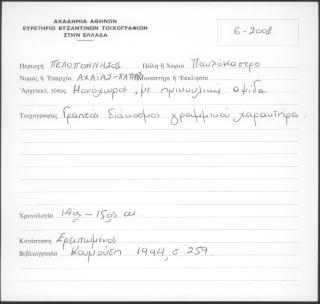 ΑΚΑΔΗΜΙΑ ΑΘΗΝΩΝ
ΕΥΡΕΤΗΡΙΟ ΒΥΖΑΝΤΙΝΩΝ ΤΟΙΧΟΓΡΑΦΙΩΝ
ΣΤΗΝ ΕΛΛΑΔΑ
6-2008
Περιοχή ΠΕΛΟΠΟΝΝΗΣΟΣ Πόλη ἤ Χωριό Παυλόκαστρο
Νομός ἤ Ἐπαρχία ΑΧΑΪΑΣ-ΠΑΤΡΩΝ Μοναστήρι ἤ Ἐκκλησία
Ἀρχιτεκτ. τύπος Μονόχωρος, με ημικυκλική αψίδα
Τοιχογραφίες Γραπτός διάκοσμος γραμμικού χαρακτήρα.
Χρονολογία 14ος-15ος αι.
Κατάσταση Ερειπωμένος
Βιβλιογραφία Κουμούση 1994, σ. 259.